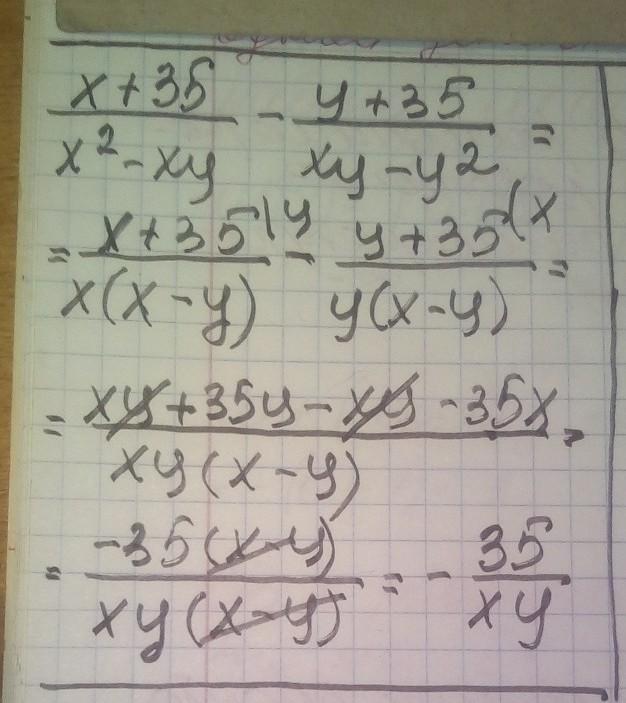 x+35/x²-xy - y+35/xy-y² =
= x+35\y/x(x-y) - y+35(x/y(x-y) =
= xy+35y-xy-35x/xy(x-y) =
= -35(x-y)/xy(x-y) = - 35/xy